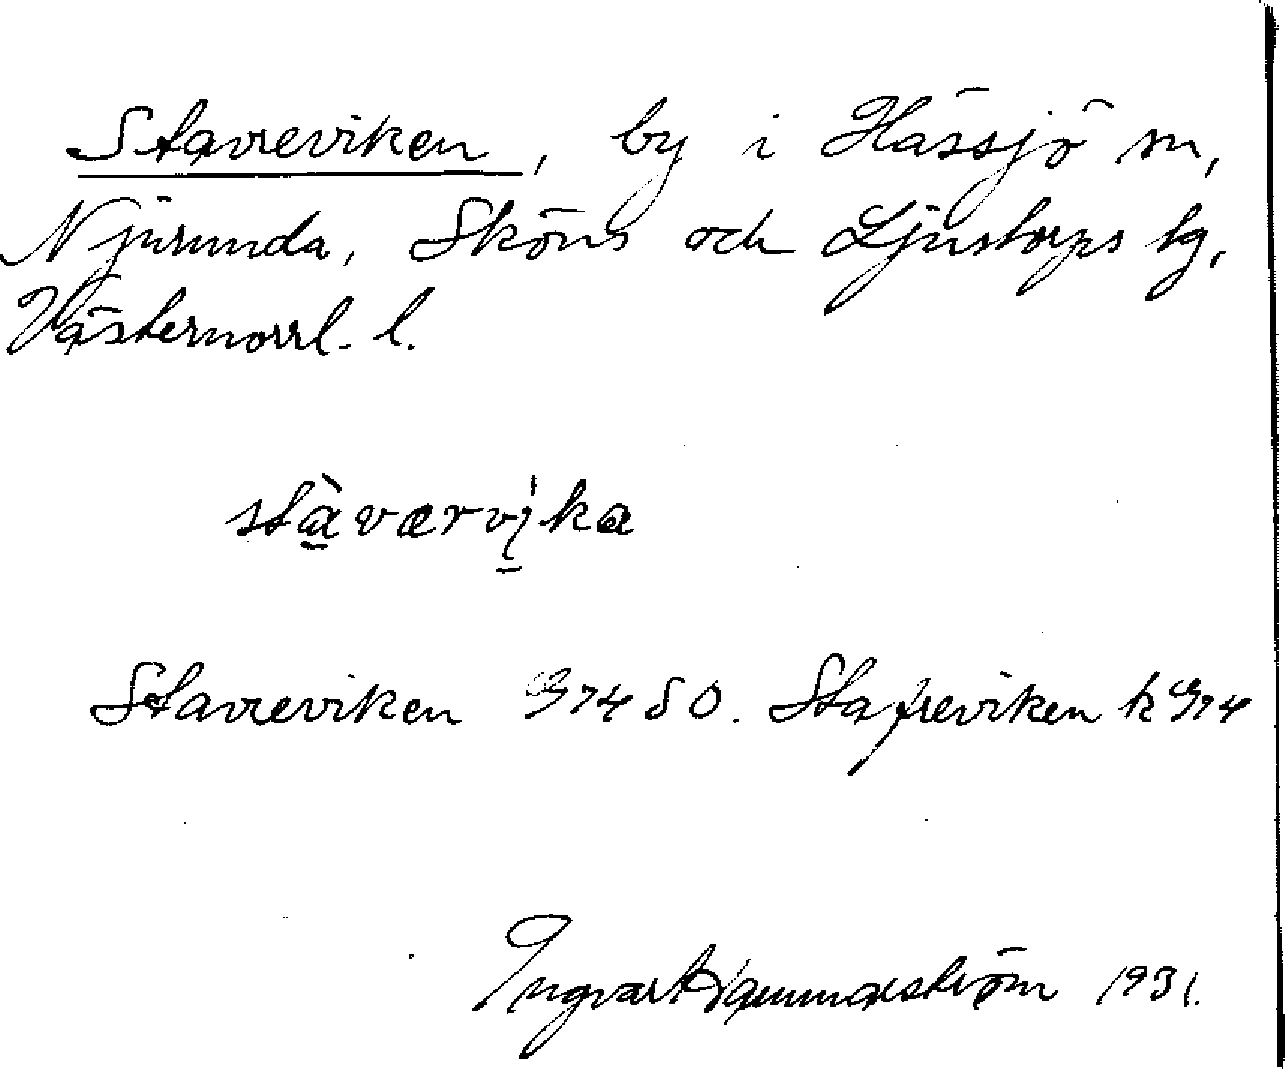 Stavreviken, by i Hässjö sn,
Njurunda, Sköns och Ljustorps tg,
Västernorrl. l.
stàværvika
Stavreviken GS74 SO. Stafreviken k GS74
Ingvar Hammarström 1931.